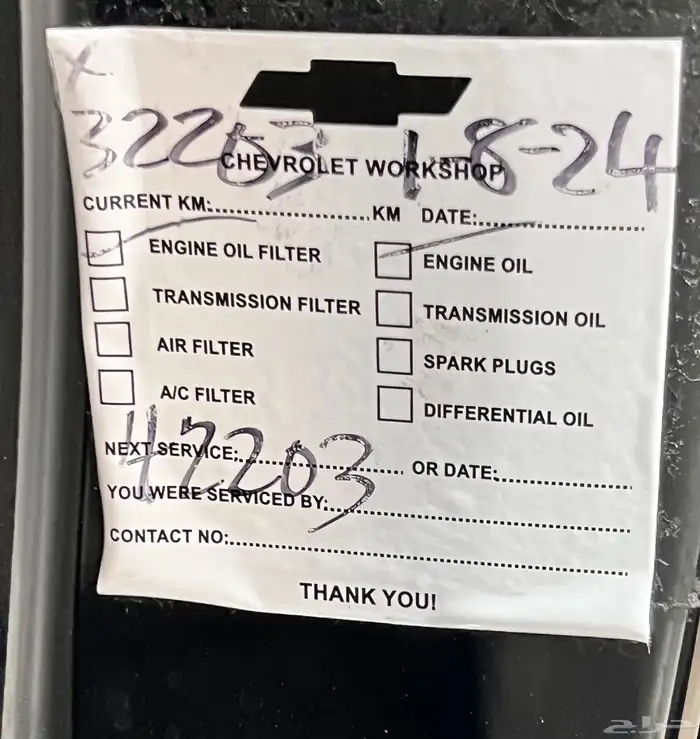 X
32203 1-8-24
CHEVROLET WORKSHOP
CURRENT KM:..........................KM DATE:............................
ENGINE OIL FILTER ENGINE OIL
TRANSMISSION FILTER TRANSMISSION OIL
AIR FILTER SPARK PLUGS
A/C FILTER DIFFERENTIAL OIL
42203
NEXT SERVICE:........................... OR DATE:........................
YOU WERE SERVICED BY:..................................................
CONTACT NO:....................................................................
THANK YOU!
حراج